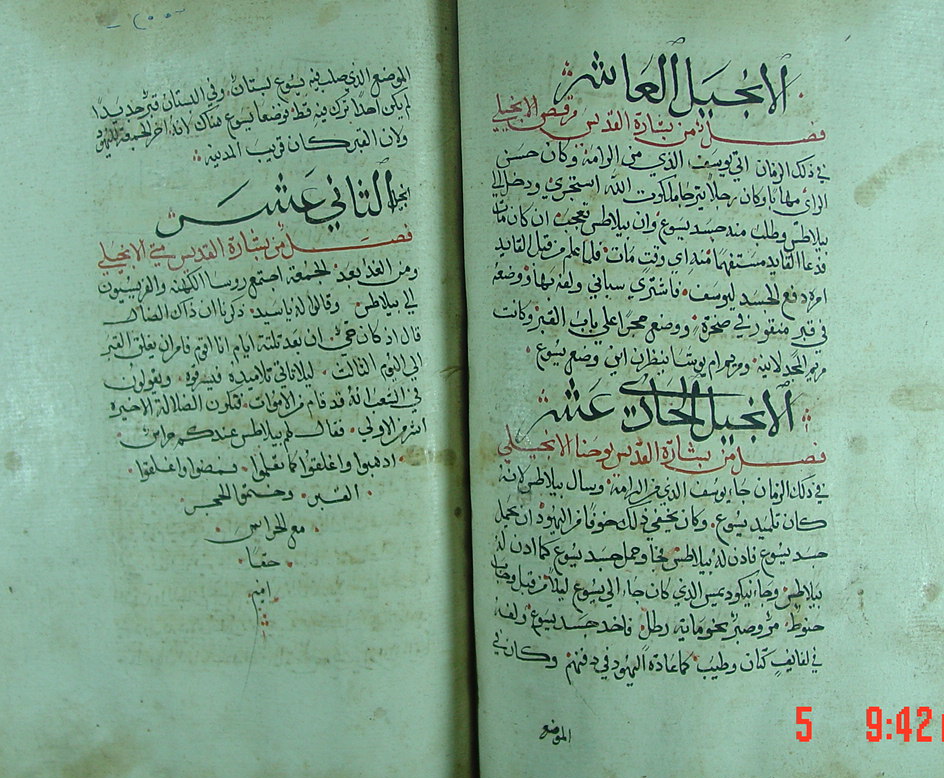 الانجيل العاشر
فصل من بشارة القديس مرقص الانجيلي
في ذلك الزمان اتي يوسف الذي من الرامة وكان حسن
الراي مهابا وكان رجلا يترجا ملكوت الله استجري ودخل الي
بيلاطس وطلب منه جسد يسوع وان بيلاطس تعجب ان كان مات
فدعا القايد مستفهما منه اي وقت مات فلما علم من قبل القايد
امر بدفع الجسد ليوسف فاشتري سباني ولفه بها ووضعه
في قبر منقور في صخرة ووضع حجرا علي باب القبر وكانت
مريم المجدلانية ومريم ام يوسا ينظران اين وضع يسوع
الانجيل الحادي عشر
فصل من بشارة القديس يوحنا الانجيلي
في ذلك الزمان جا يوسف الذي من الرامة وسال بيلاطس لانه
كان تلميد يسوع وكان يخفي ذلك خوفا من اليهود ان يحمل
جسد يسوع فادن له بيلاطس فجا وحمل جسد يسوع كما ادن له
بيلاطس وجا نيكوديمس الذي كان جاء الي يسوع ليلا من قبل وجاب
حنوط مر وصبر نحو ماية رطل فاخد جسد يسوع ولفه
في لفايف كتان وطيب كما عادة اليهود في دفنهم وكان في
الموضع
الموضع الذي صلب فيه يسوع بستان وفي البستان قبر جديد ا
لم يكن احدا ترك فيه قط فوضعا يسوع هناك لانه اخر الجمعة لليهود
ولان القبر كان قريب المدينة
انجيل الثاني عشر
فصل من بشارة القديس متي الانجيلي
ومن الغد بعد الجمعة اجتمع روسا الكهنة والفريسيون
الي بيلاطس وقالوا له يا سيد ذكرنا ان ذاك الضال
قال اذ كان حي ان بعد تلتة ايام انا اقوم فامر ان يغلق القبر
الي اليوم الثالث ليلا ياتي تلاميده فيسرقوه ويقولون
في الشعب انه قد قام من الاموات فتكون الضلالة الاخيرة
اشر من الاولي فقال لهم بيلاطس عندكم حراس
ادهبوا واغلقوا كما تعلموا فمضوا واغلقوا
القبر وختموا الحجر
مع الحراس
حقا
امين
5 9:42